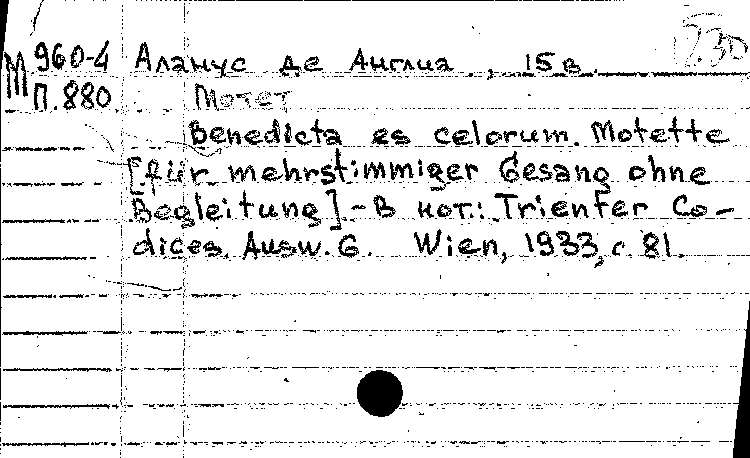 М 960-4 Аланус де Англиа, 15 в.
П.880 Мотет
Benedicta es celorum. Motette
[für mehrstimmiger Gesang ohne
Begleitung] - В нот.: Trienter Co-
dices. Ausw. 6. Wien, 1933, с. 81.